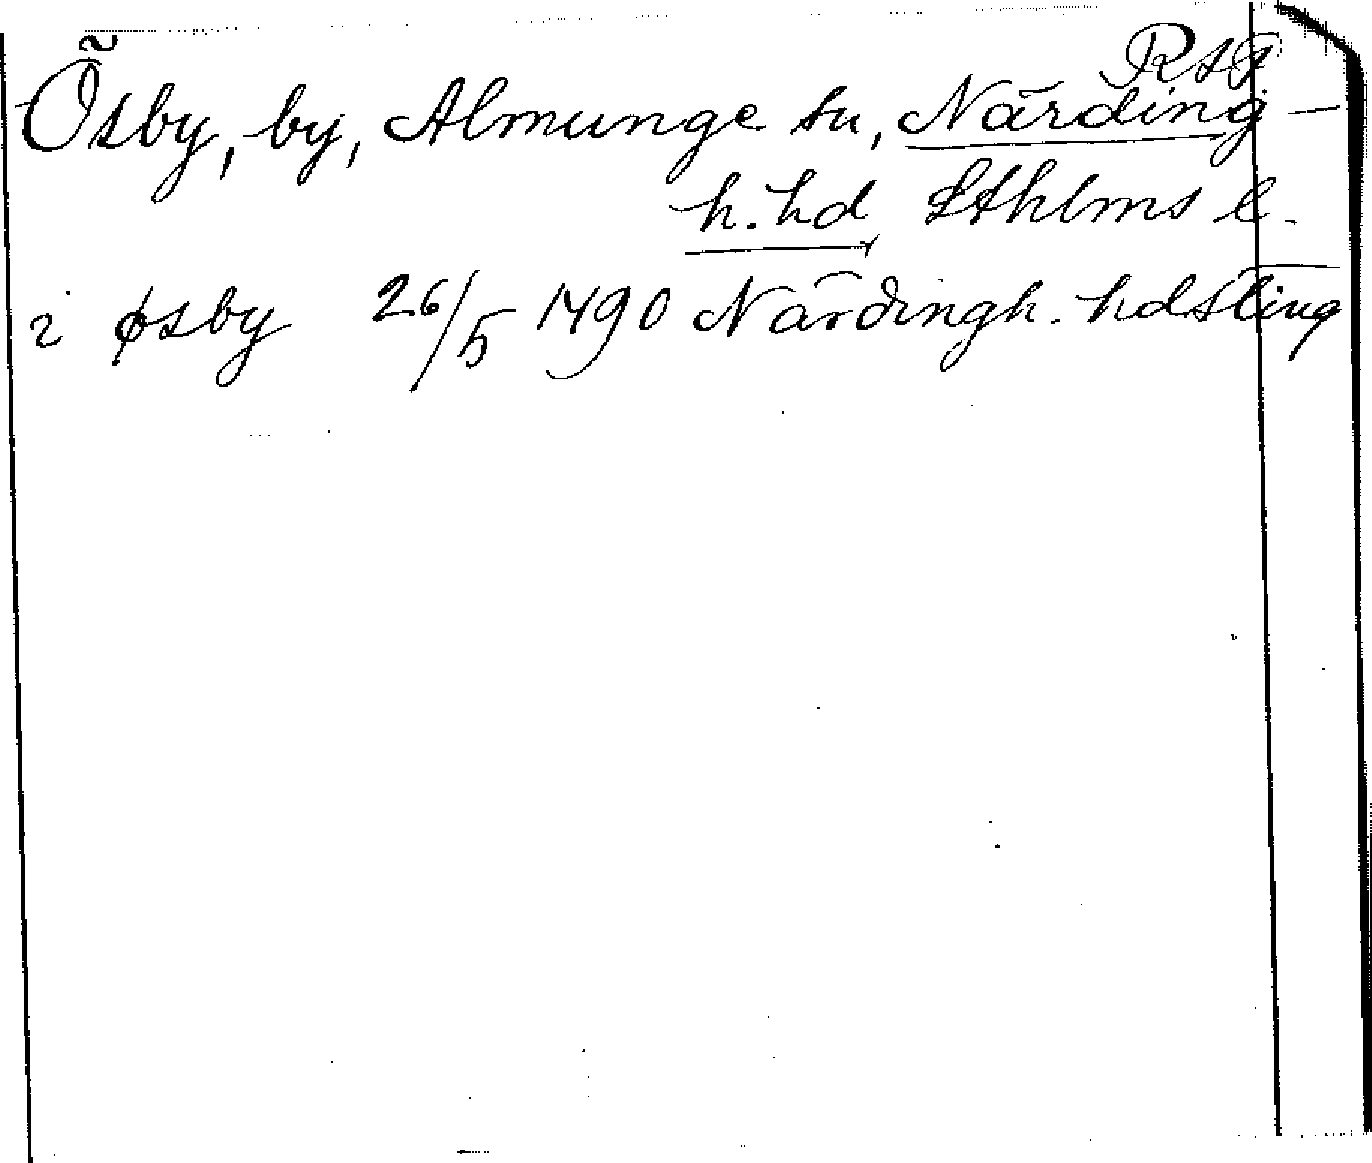 Ösby, by, Almunge sn, Närding-
h. hd Sthlms l.
i øsby 26/5 1490 Närdingh. hdsting